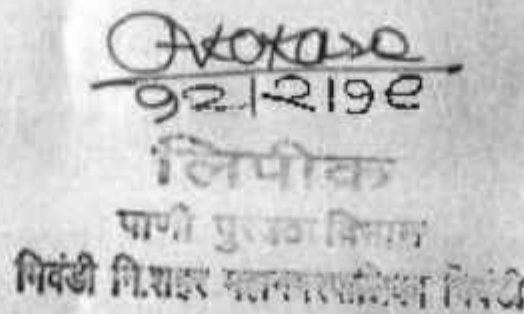 १२/२/१९
लिपीक
पाणी पुरवठा विभाग
भिवंडी नि.शहर महानगरपालिका भिवंडी